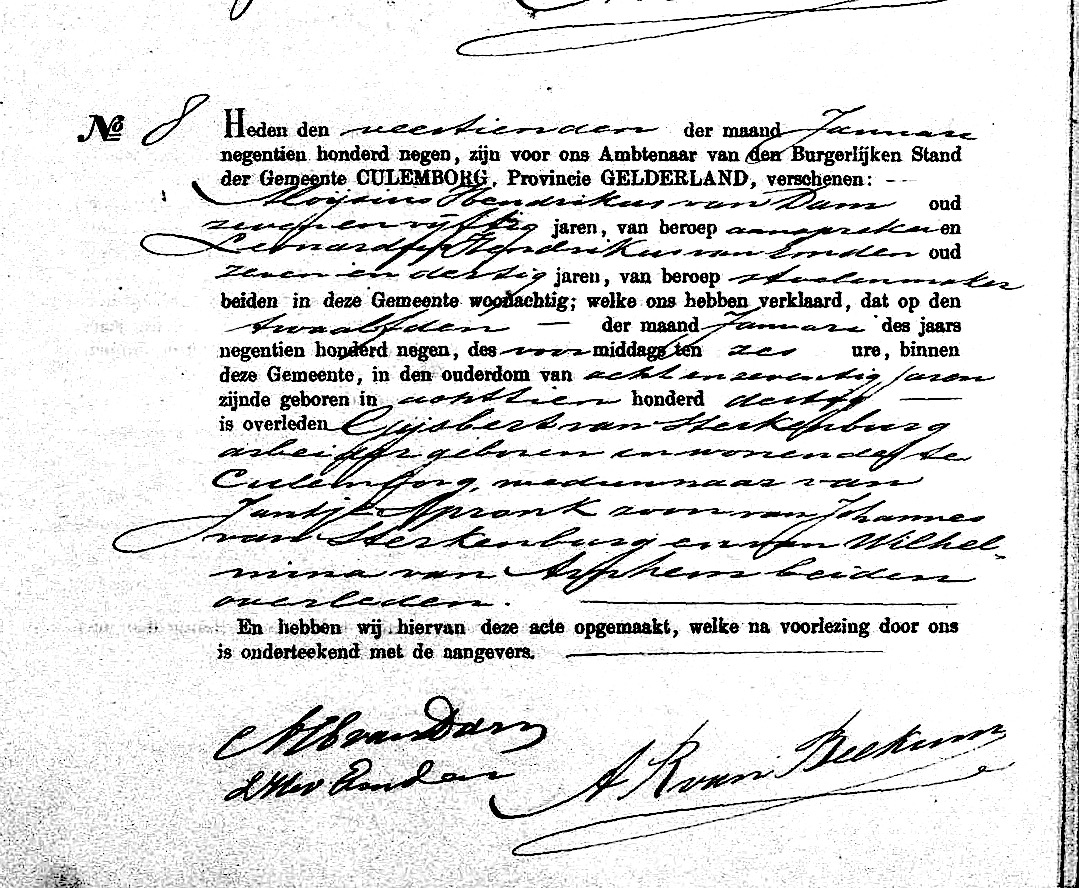 No 8 Heden den veertienden der maand Januari
negentien honderd negen, zijn voor ons Ambtenaar van den Burgerlijken Stand
der Gemeente CULEMBORG, Provincie GELDERLAND, verschenen:
Aloijsius Hendrikus van Dam oud
zeven en vijftig jaren, van beroep aanspreker en
Leonardus Hendrikus van Emden oud
zeven en dertig jaren, van beroep stoelenmaker
beiden in deze Gemeente woonachtig; welke ons hebben verklaard, dat op den
twaalfden — der maand Januari des jaars
negentien honderd negen, des voormiddags ten zes ure, binnen
deze Gemeente, in den ouderdom van acht en zeventig jaren
zijnde geboren in achttien honderd dertig —
is overleden Gijsbert van Sterkenburg
arbeider geboren en wonende te
Culemborg, weduwnaar van
Jantje Spronk zoon van Johannes
van Sterkenburg en van Wilhel-
mina van Arnhem beiden
overleden.
En hebben wij hiervan deze acte opgemaakt, welke na voorlezing door ons
is onderteekend met de aangevers.
AH van Dam
LH v Emden
A K van Beekum